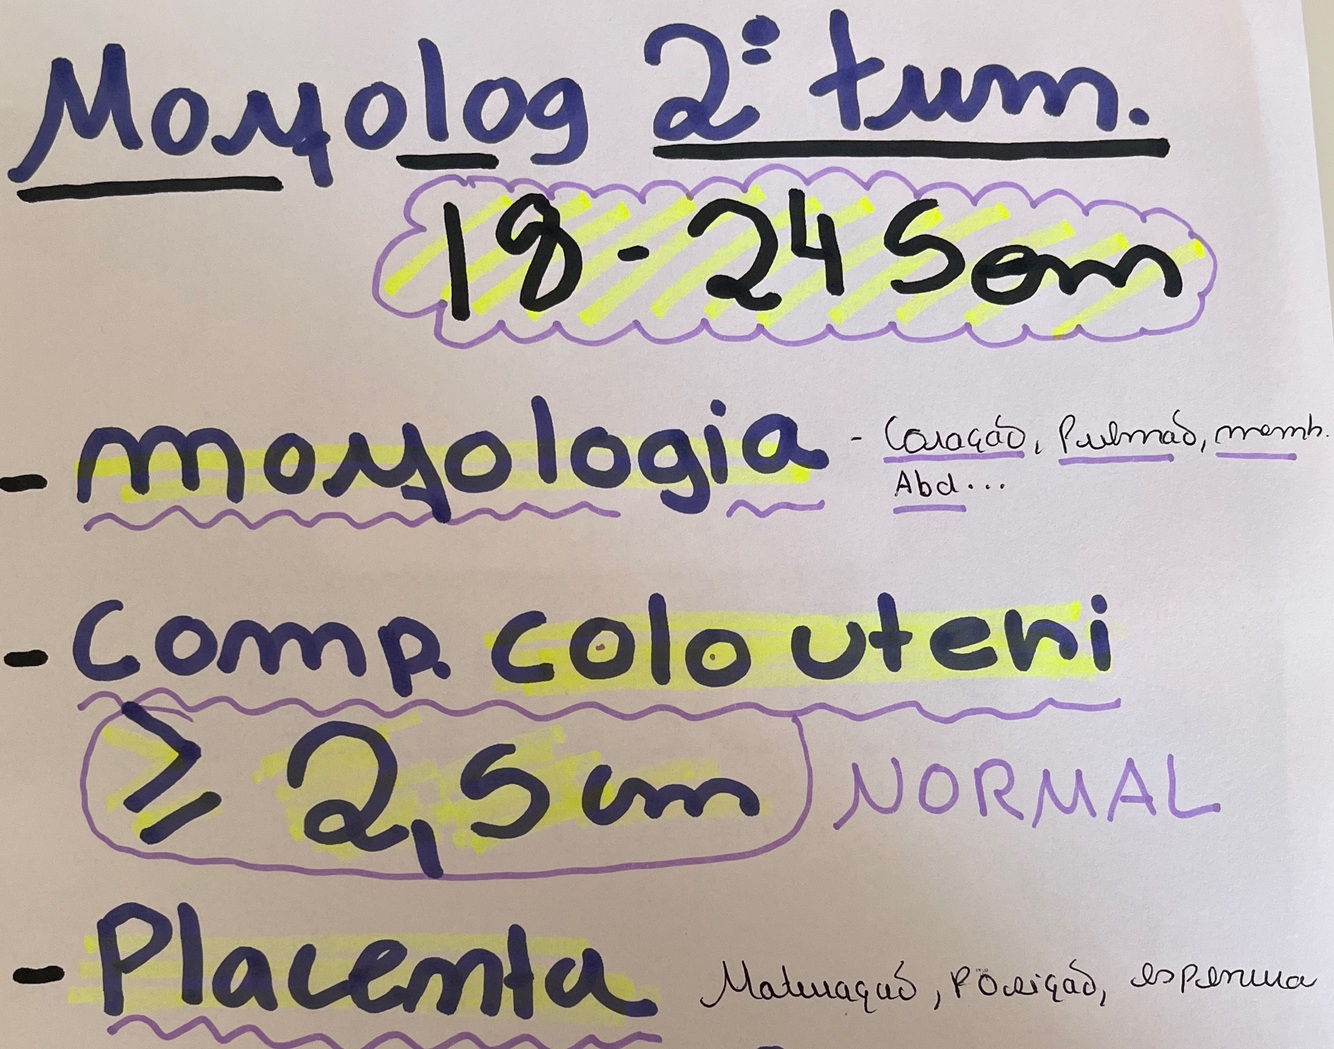 Morfolog 2º trim.
18 - 24 Sem
- morfologia - Coração, Pulmão, memb.
Abd...
- Comp. colo uteri
≥ 2,5 cm NORMAL
- Placenta Maturação, Posição, espessura